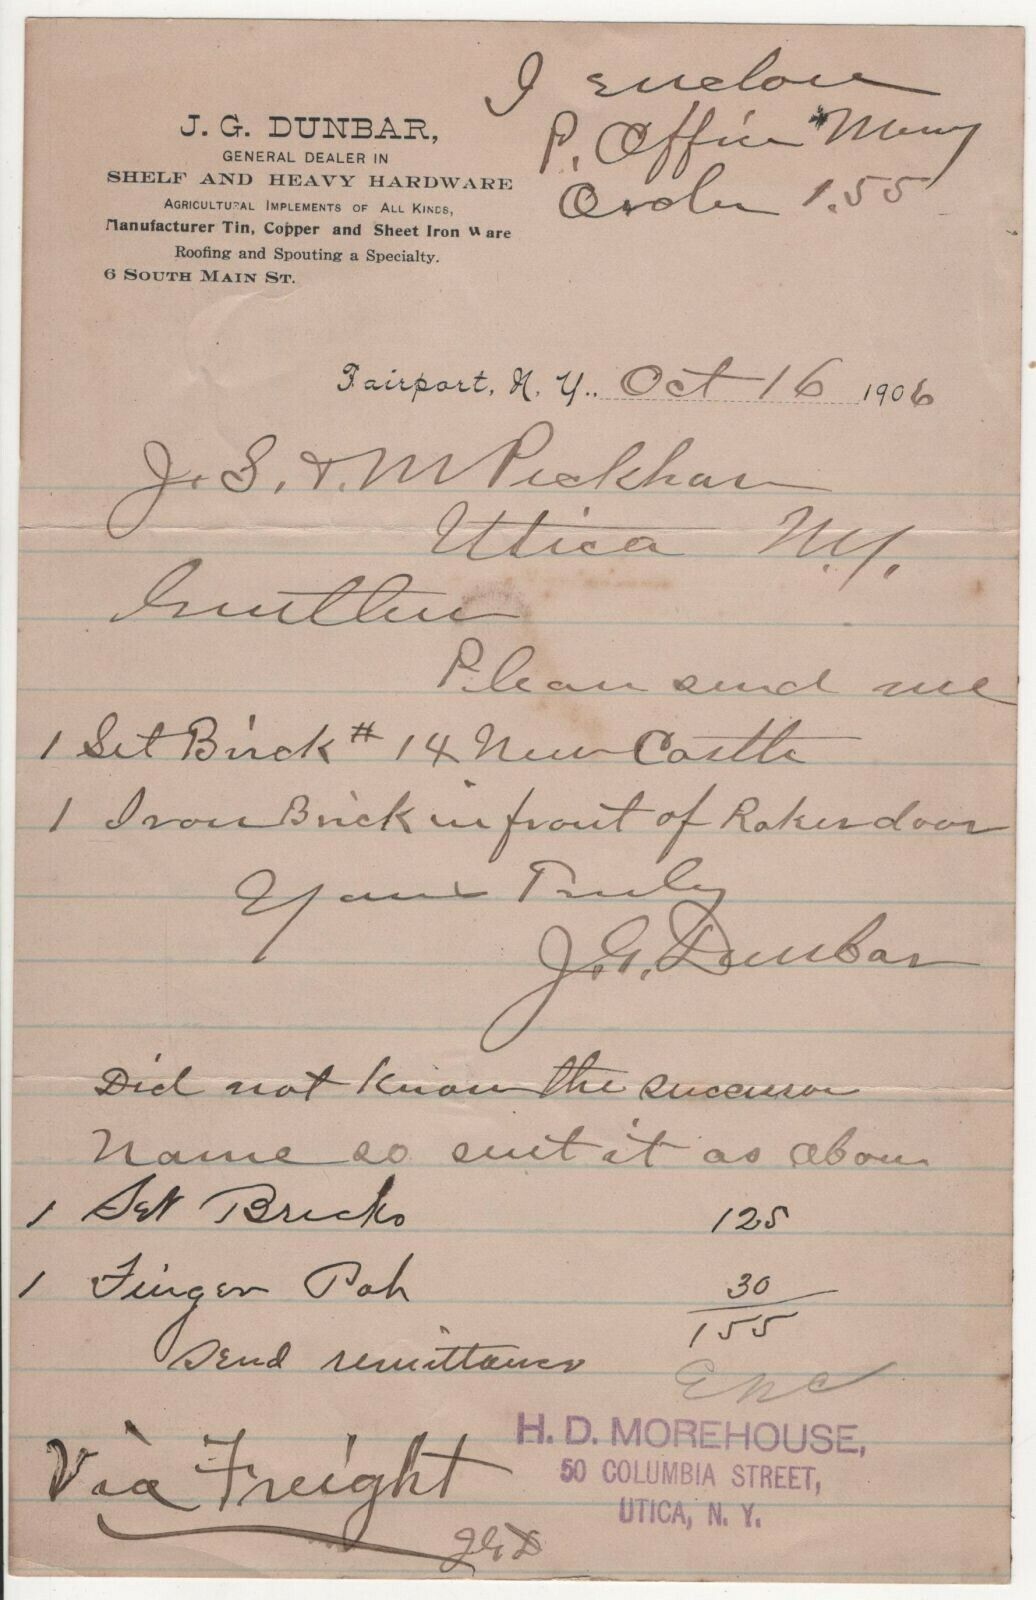 I enclose
P. Office Money
Order 1.55
J. G. DUNBAR,
GENERAL DEALER IN
SHELF AND HEAVY HARDWARE
AGRICULTURAL IMPLEMENTS OF ALL KINDS,
Manufacturer Tin, Copper and Sheet Iron Ware
Roofing and Spouting a Specialty.
6 SOUTH MAIN ST.
Fairport, N. Y., Oct 16 1906
J. S. & M Peckham
Utica N.Y.
Gentlemen
Please send me
1 Set Brick # 14 New Castle
1 Iron Brick in front of Raker door
Yours Truly
J. G. Dunbar
Did not know the successor
Name so sent it as above
1 Set Bricks 125
1 Finger 30
155
Send remittance
Enc
H. D. MOREHOUSE,
50 COLUMBIA STREET,
UTICA, N. Y.
Via Freight
JGD